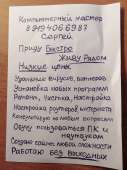 Компьютерный мастер
8 919 406 69 87
Сергей
Приду Быстро
Живу Рядом
Низкие цены
Удаление вирусов, баннеров
Установка новых программ
Ремонт, Чистка, Настройка
Настройка роутеров интернета
Консультирую по любым вопросам
Обучу пользоваться ПК и
ноутбуком
Создаю сайты любой сложности
Работаю без выходных